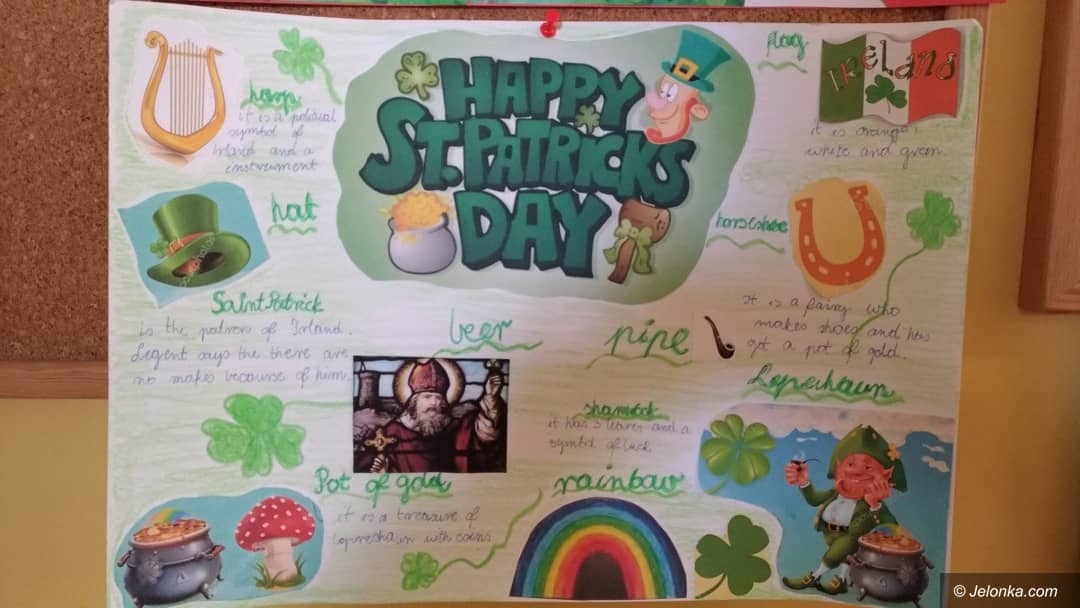 HAPPY
ST. PATRICKS
DAY
flag
IRELAND
it is orange,
white and green.
harp
it is a political
symbol of
Irland and a
instreument
hat
horseshoe
Saint Patrick
is the patron of Irland.
Legent says the there are
no makes because of him
beer
pipe
It is a fairy who
makes shoes and has
got a pot of gold.
Lepechaun
shamrock
it has 3 leaves and a
symbol of luck
Pot of gold
it is a treasure of
lepreshaun with coins
rainbow
© Jelonka.com